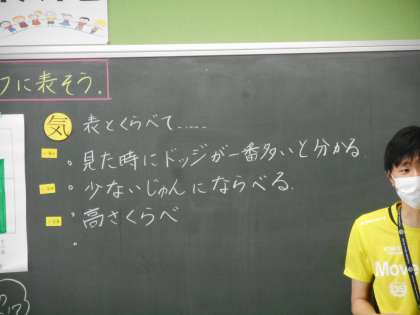 フに表そう。
気 表とくらべて……
。見た時にドッジが一番多いと分かる
。少ないじゅんにならべる
。高さくらべ
。
Move